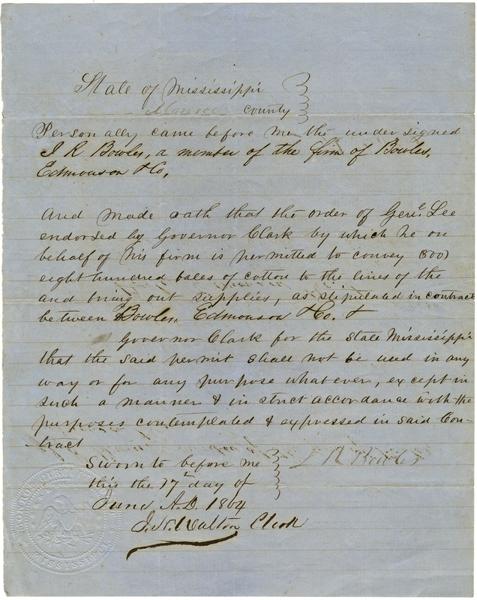 State of Mississippi
Monroe county
Personally came before me the undersigned
J R Bowles, a member of the firm of Bowles,
Edmonson & Co,
And made oath that the order of Genl. Lee
endorsed by Governor Clark by which he on
behalf of his firm is permitted to convey (800)
eight hundred bales of cotton to the lines of the
and bring out supplies, as stipulated in contract
between Bowles, Edmonson & Co. &
Governor Clark for the State Mississippi
that the said permit shall not be used in any
way or for any purpose whatever, except in
such a manner & in strict accordance with the
purposes contemplated & expressed in said Con-
tract
Sworn to before me
J R Bowles
this the 17th day of
June A.D. 1864
Walton Clerk